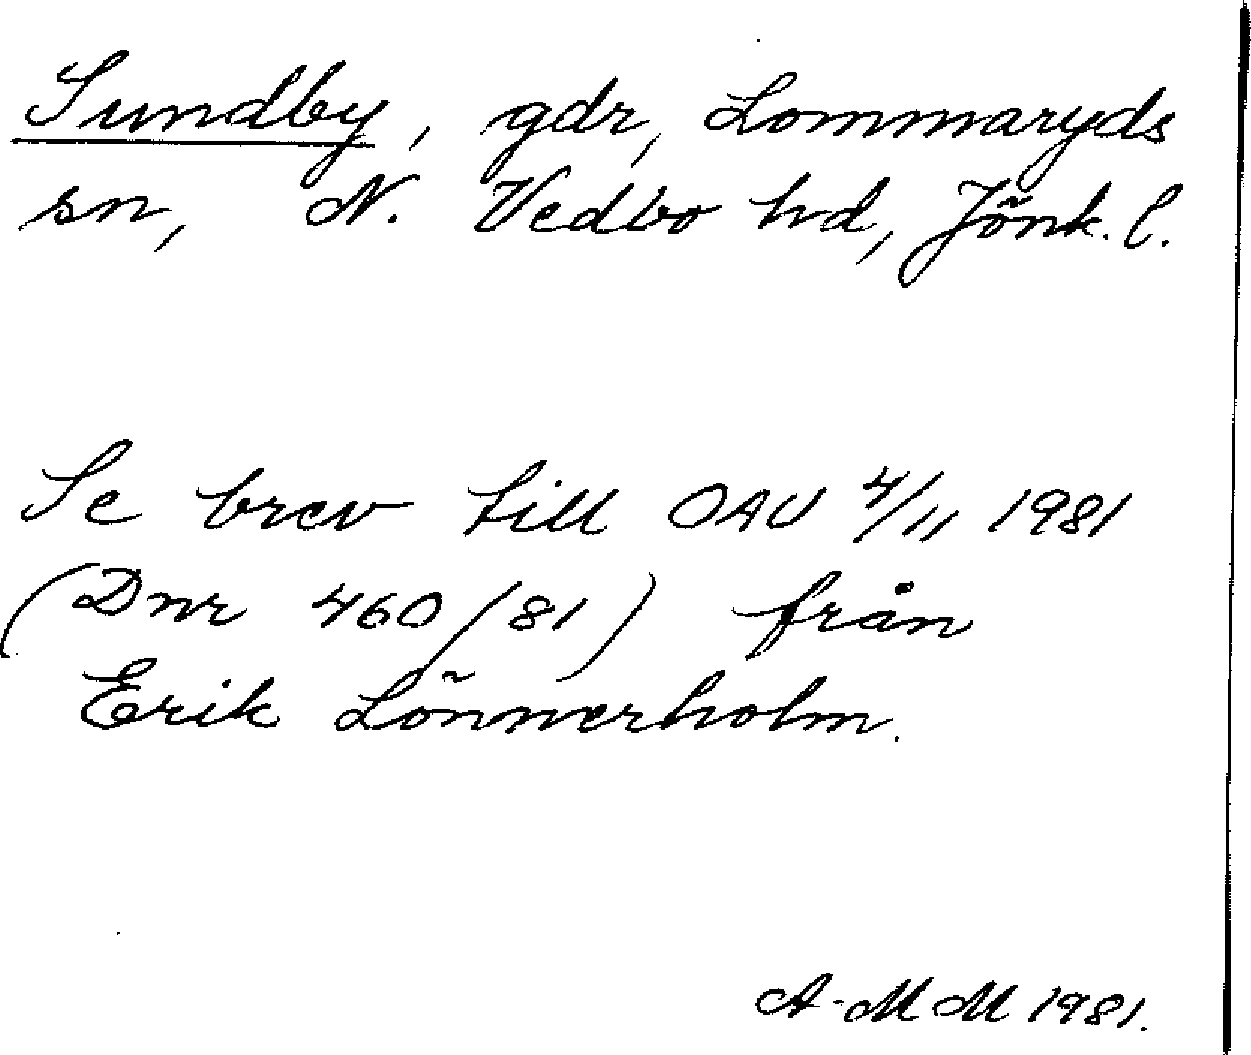 Sundby, gdr, Lommaryds
sn, N. Vedbo hd, Jönk. l.
Se brev till OAU 4/11 1981
(Dnr 460/81) från
Erik Lönnerholm.
A-MM 1981.